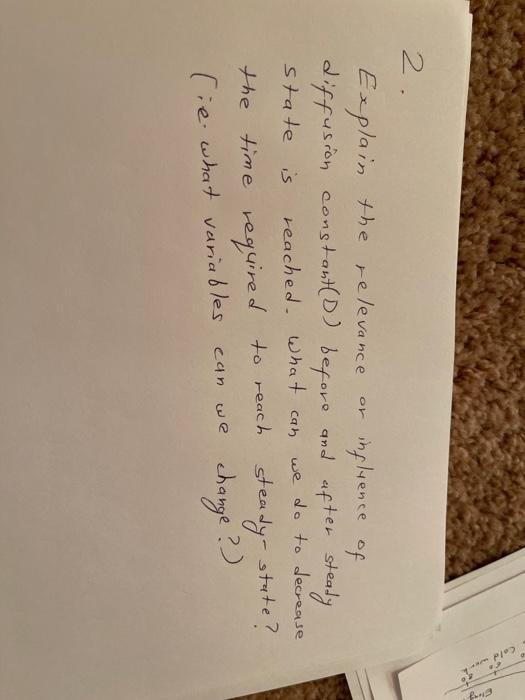 2.
Explain the relevance or influence of
diffusion constant(D) before and after steady
state is reached. What can we do to decrease
the time required to reach steady-state?
(ie. what variables can we change?)
Cold work